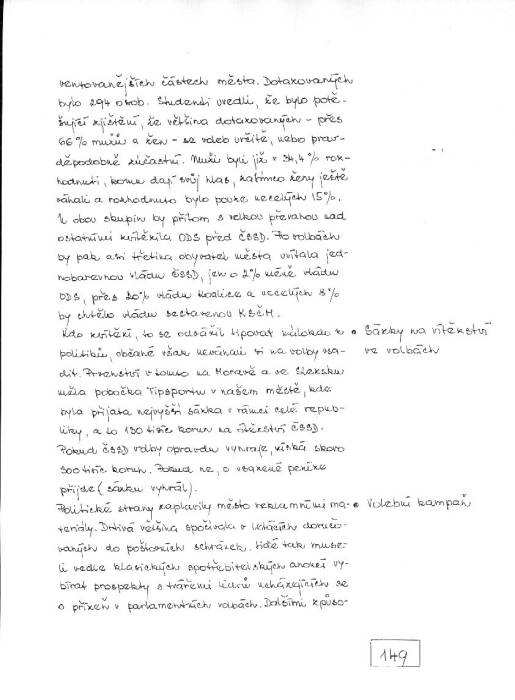 ventovanějších částech města. Dotazovaných
bylo 294 osob. Studenti uvedli, že bylo potě-
šující zjištění, že většina dotazovaných - přes
66% mužů a žen - se voleb určitě, nebo prav-
děpodobně zúčastní. Muži byli již v 24,4% roz-
hodnuti, komu dají svůj hlas, zatímco ženy ještě
váhali a rozhodnuto bylo pouze necelých 15%.
U obou skupin by přitom s velkou převahou nad
ostatními zvítězila ODS před ČSSD. Po volbách
by pak asi třetina obyvatel města uvítala jed-
nobarevnou vládu ČSSD, jen o 2% méně vládu
ODS, přes 20% vládu Koalice a necelých 8%
by chtělo vládu sestavenou KSČM.
Kdo zvítězí, to se odvážil tipovat málokdo z
politiků, občané však neváhali si na volby vsa-
dit. Prvenství v tomto na Moravě a ve Slezsku
měla pobočka Tipsportu v našem městě, kde
byla přijata nejvyšší sázka v rámci celé repub-
liky, a to 130 tisíc korun na vítězství ČSSD.
Pokud ČSSD volby opravdu vyhraje, získá skoro
300 tisíc korun. Pokud ne, o vsazené peníze
přijde (sázku vyhrál).
Sázky na vítězství
ve volbách
Politické strany zaplavily město reklamními ma-
teriály. Drtivá většina spočívala v letácích doručo-
vaných do poštovních schránek. Lidé tak muse-
li vedle klasických spotřebitelských anoncí vy-
bírat prospekty s tvářemi lídrů ucházejících se
o přízeň v parlamentních volbách. Dalšími způso-
Volební kampaň
149